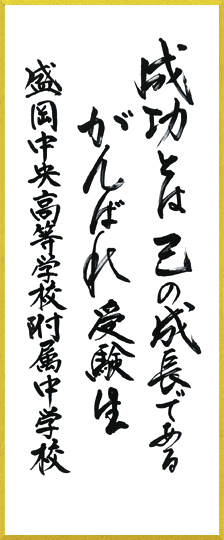 成功とは己の成長である
がんばれ受験生
盛岡中央高等学校附属中学校